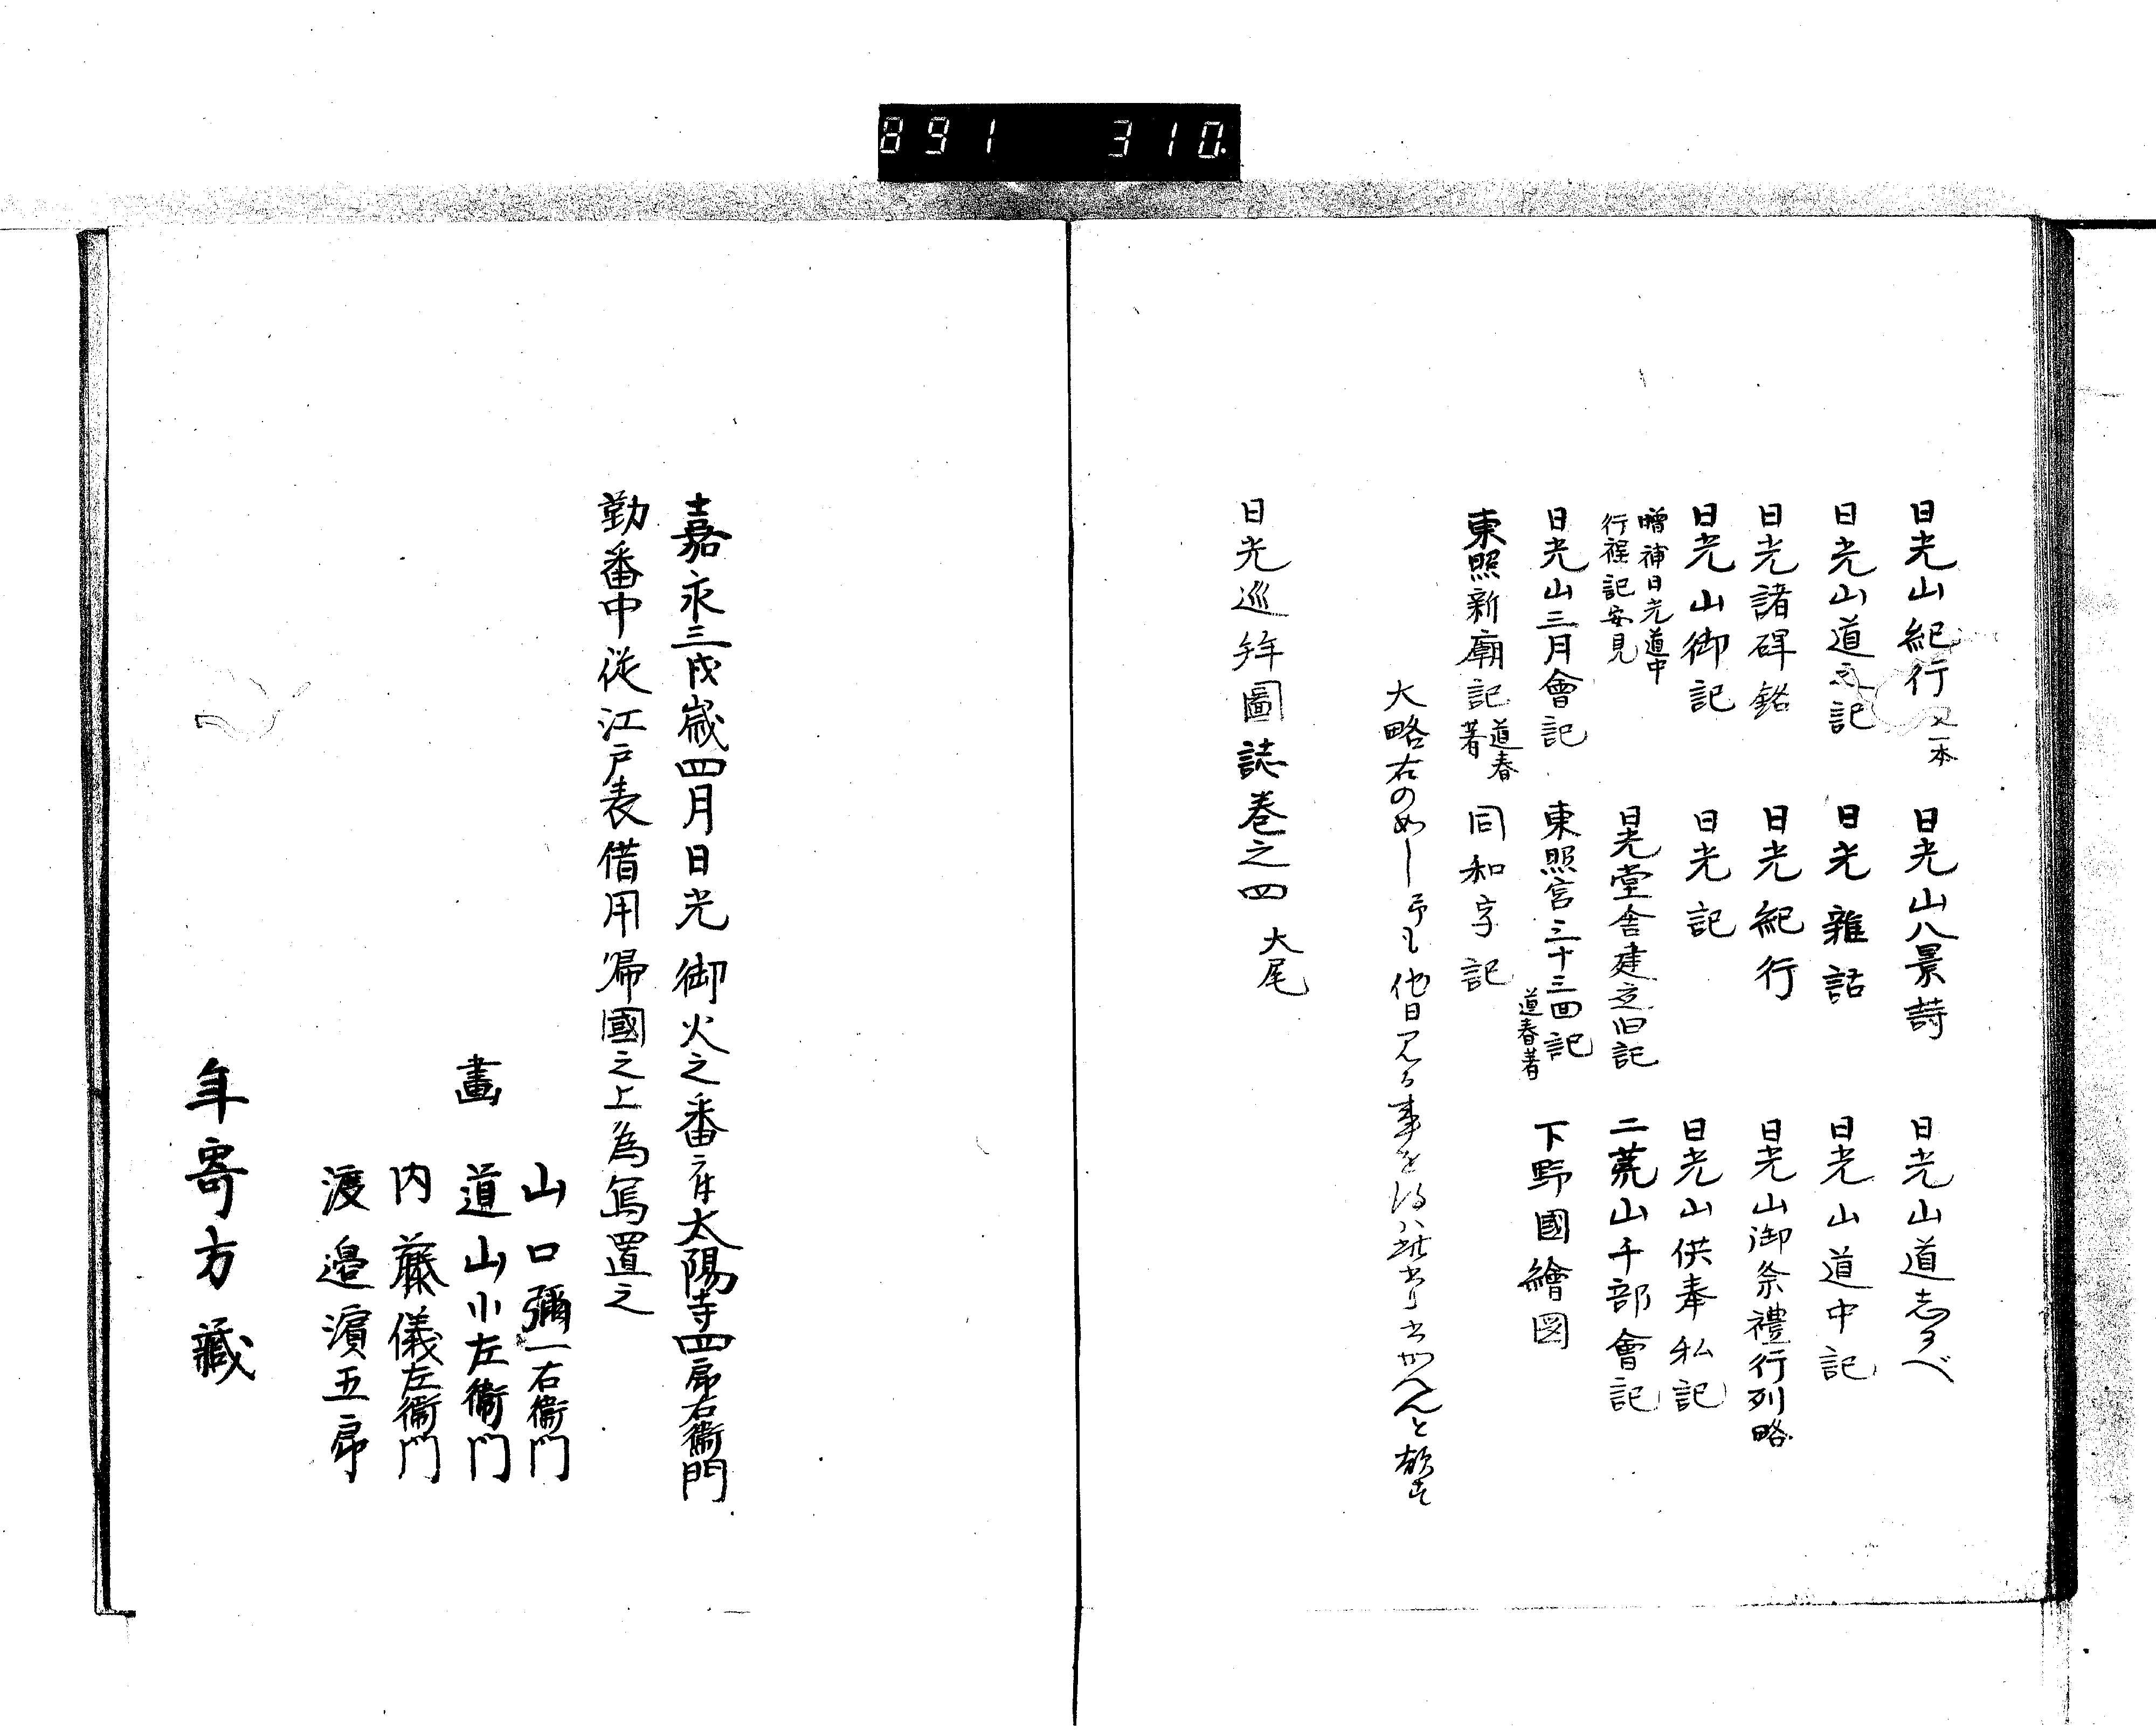 891 310.
日光山紀行 又一本 日光山八景詩 日光山道志るべ
日光山道之記 日光雜話 日光山道中記
日光諸碑銘 日光紀行 日光山御祭禮行列略
日光山御記 日光記 日光山供奉私記
増補日光道中
行程記安見 日光堂舎建立旧記 二荒山千部會記
日光山三月會記 東照宮三十三回記 道春著 下野國繪図
東照新廟記 道春著 同和字記
大略右の如し 予も他日見る事を得ハ
日光巡拜圖誌巻之四 大尾
嘉永三戌歳四月日光御火之番 太陽寺四郎右衛門
勤番中従江戸表借用帰國之上為寫置之
山口彌一右衛門
畫 道山小左衛門
内藤儀左衛門
渡邉濱五郎
年寄方藏